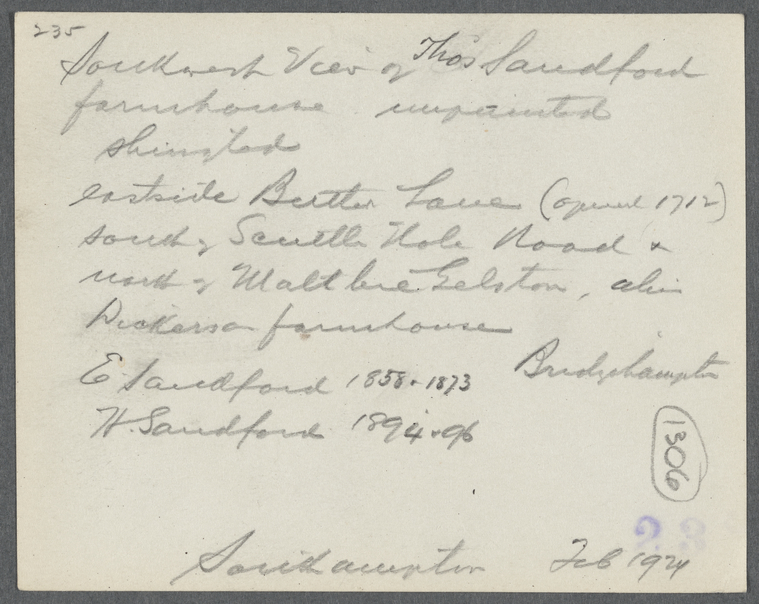 235
Southwest View of Thos Sandford
farmhouse unpainted
shingled
eastside Butter Lane (opened 1712)
south of Scuttle Hole Road &
north of Maltbie Gelston, alias
Dickerson farmhouse
Bridgehampton
E Sandford 1858 & 1873
H. Sandford 1894 & 96
1306
Southampton Feb 1924